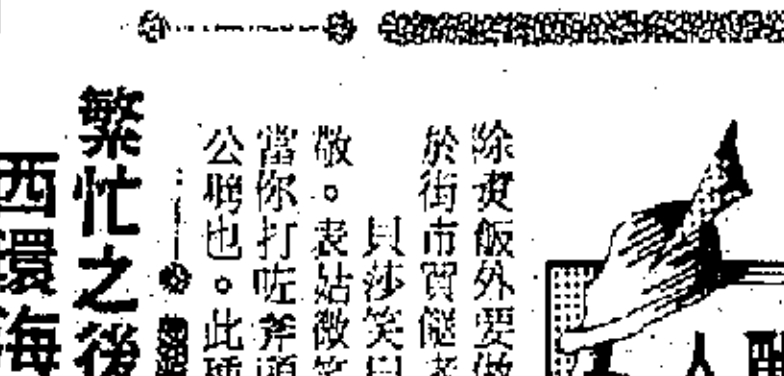 除煑飯外要做
於街市買餸者
貝莎笑曰
敬。表姑微笑
當你打咗斧頭
公嘢也。此種
繁忙之後
西環海